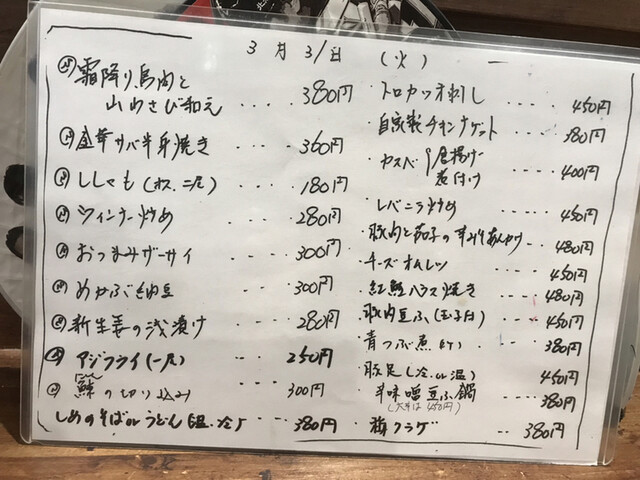 3月31日 (火)
霜降り鳥肉と
山わさび和え ････ 380円
金華サバ半身焼き ････ 360円
ししゃも(オス.二尾) ････ 180円
ウィンナー炒め ････ 280円
おつまみザーサイ ････ 300円
めかぶ納豆 ････ 300円
新生姜の浅漬け ････ 280円
アジフライ(一尾) ････ 250円
にしん
鯡の切り込み 300円
しめのそばorうどん(温.冷) ････ 380円
・トロカツオ刺し ････ 450円
・自家製チキンナゲット ････ 380円
・カスベ 唐揚げ
煮付け ････ 400円
・レバニラ炒め ････ 450円
・豚肉と茄子の辛みりあんかけ ････ 480円
・チーズオムレツ ････ 450円
・紅鮭ハラス焼き ････ 480円
・豚肉豆ふ(玉子白) ････ 450円
・青つぶ煮 ････ 380円
・豚足(冷or温) ････ 450円
・辛味噌豆ふ鍋 ････ 380円
(大辛は450円)
・梅クラゲ ･･･ 380円